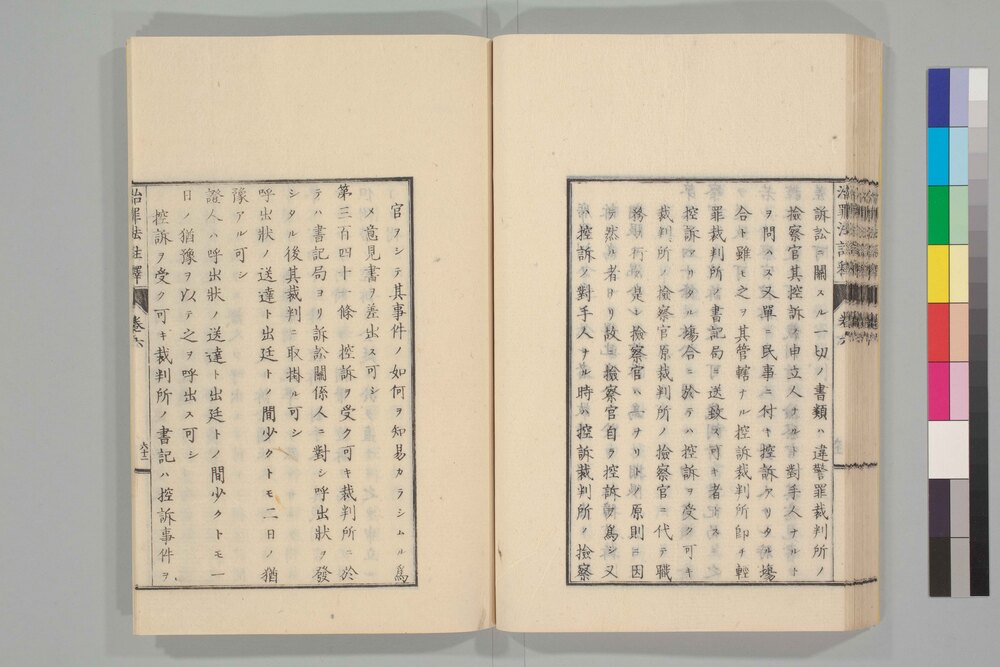 治罪法註釋 卷六
訴訟ニ關スル一切ノ書類ハ違警罪裁判所ノ
檢察官其控訴ノ申立人ナルト對手人ナルト
ヲ問ハス又單ニ民事ニ付キ控訴アリタル塲
合ト雖モ之ヲ其管轄ナル控訴裁判所即チ輕
罪裁判所ノ書記局ニ送致ス可キ者トス
控訴アリタル塲合ニ於テハ控訴ヲ受ク可キ
裁判所ノ檢察官原裁判所ノ檢察官ニ代テ職
務ヲ行フ是レ檢察官ハ爲ナリトノ原則ニ因
テ然ル者ナリ故ニ檢察官自ラ控訴ヲ爲シ又
ハ控訴ノ對手人タル時ハ控訴裁判所ノ檢察
官ヲシテ其事件ノ如何ヲ知易カラシムル爲
メ意見書ヲ差出ス可シ
第三百四十一條 控訴ヲ受ク可キ裁判所ニ於
テハ書記局ヨリ訴訟關係人ニ對シ呼出狀ヲ發
シタル後其裁判ニ取掛ル可シ
呼出狀ノ送達ト出廷トノ間少クトモ二日ノ猶
豫アル可シ
證人ハ呼出狀ノ送達ト出廷トノ間少クトモ一
日ノ猶豫ヲ以テ之ヲ呼出ス可シ
控訴ヲ受ク可キ裁判所ノ書記ハ控訴事件ヲ
治罪法註釋 卷六 六十二